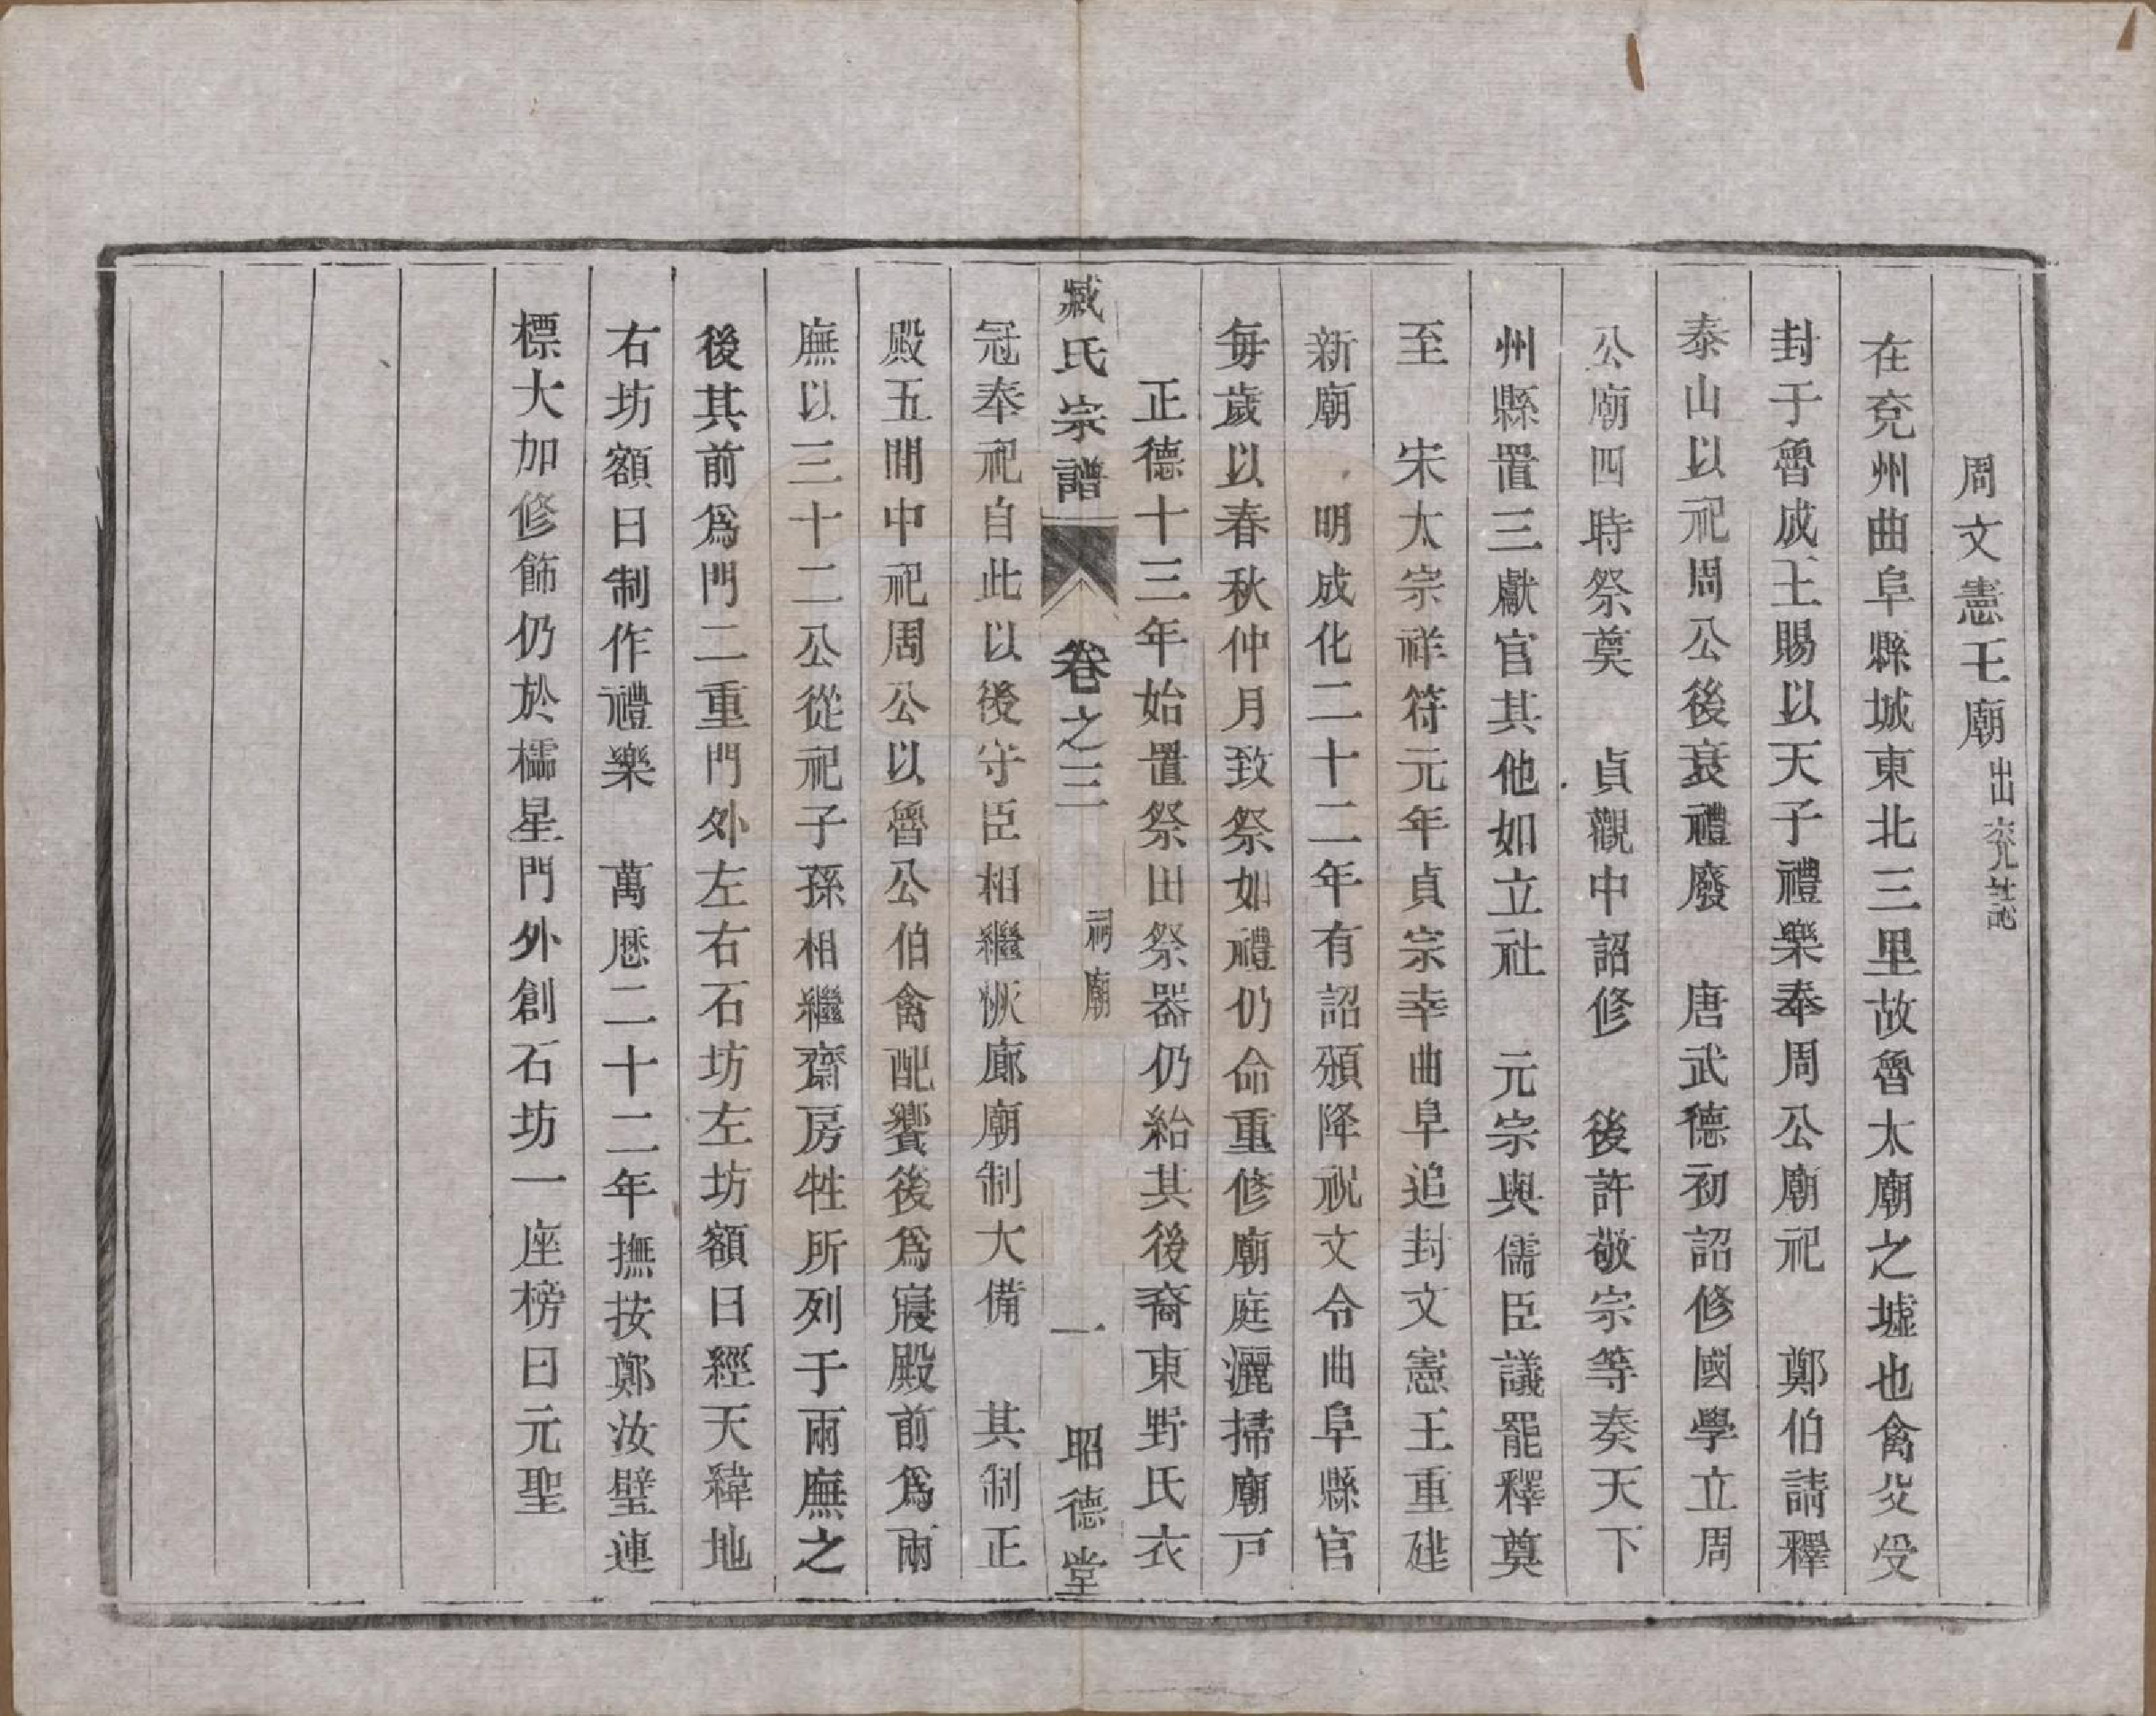 周文憲王廟出兖誌
在兖州曲阜縣城東北三里故魯太廟之墟也禽父受
封于魯成王賜以天子禮樂奉周公廟祀　鄭伯請釋
泰山以祀周公後衰禮廢　唐武德初詔修國學立周
公廟四時祭奠　貞觀中詔修　後許敬宗等奏天下
州縣置三獻官其他如立社　元宗與儒臣議罷釋奠
至　宋太宗祥符元年貞宗幸曲阜追封文憲王重建
新廟　明成化二十二年有詔頒降祝文令曲阜縣官
每歲以春秋仲月致祭如禮仍命重修廟庭灑掃廟戸
正德十三年始置祭田祭器仍給其後裔東野氏衣
臧氏宗譜　卷之三　祠廟　一　昭德堂
冠奉祀自此以後守臣相繼恢廓廟制大備　其制正
殿五間中祀周公以魯公伯禽配饗後爲寢殿前爲兩
廡以三十二公從祀子孫相繼齋房牲所列于兩廡之
後其前爲門二重門外左右石坊左坊額曰經天緯地
右坊額曰制作禮樂　萬厯二十二年撫按鄭汝璧連
標大加修飾仍於櫺星門外創石坊一座榜曰元聖